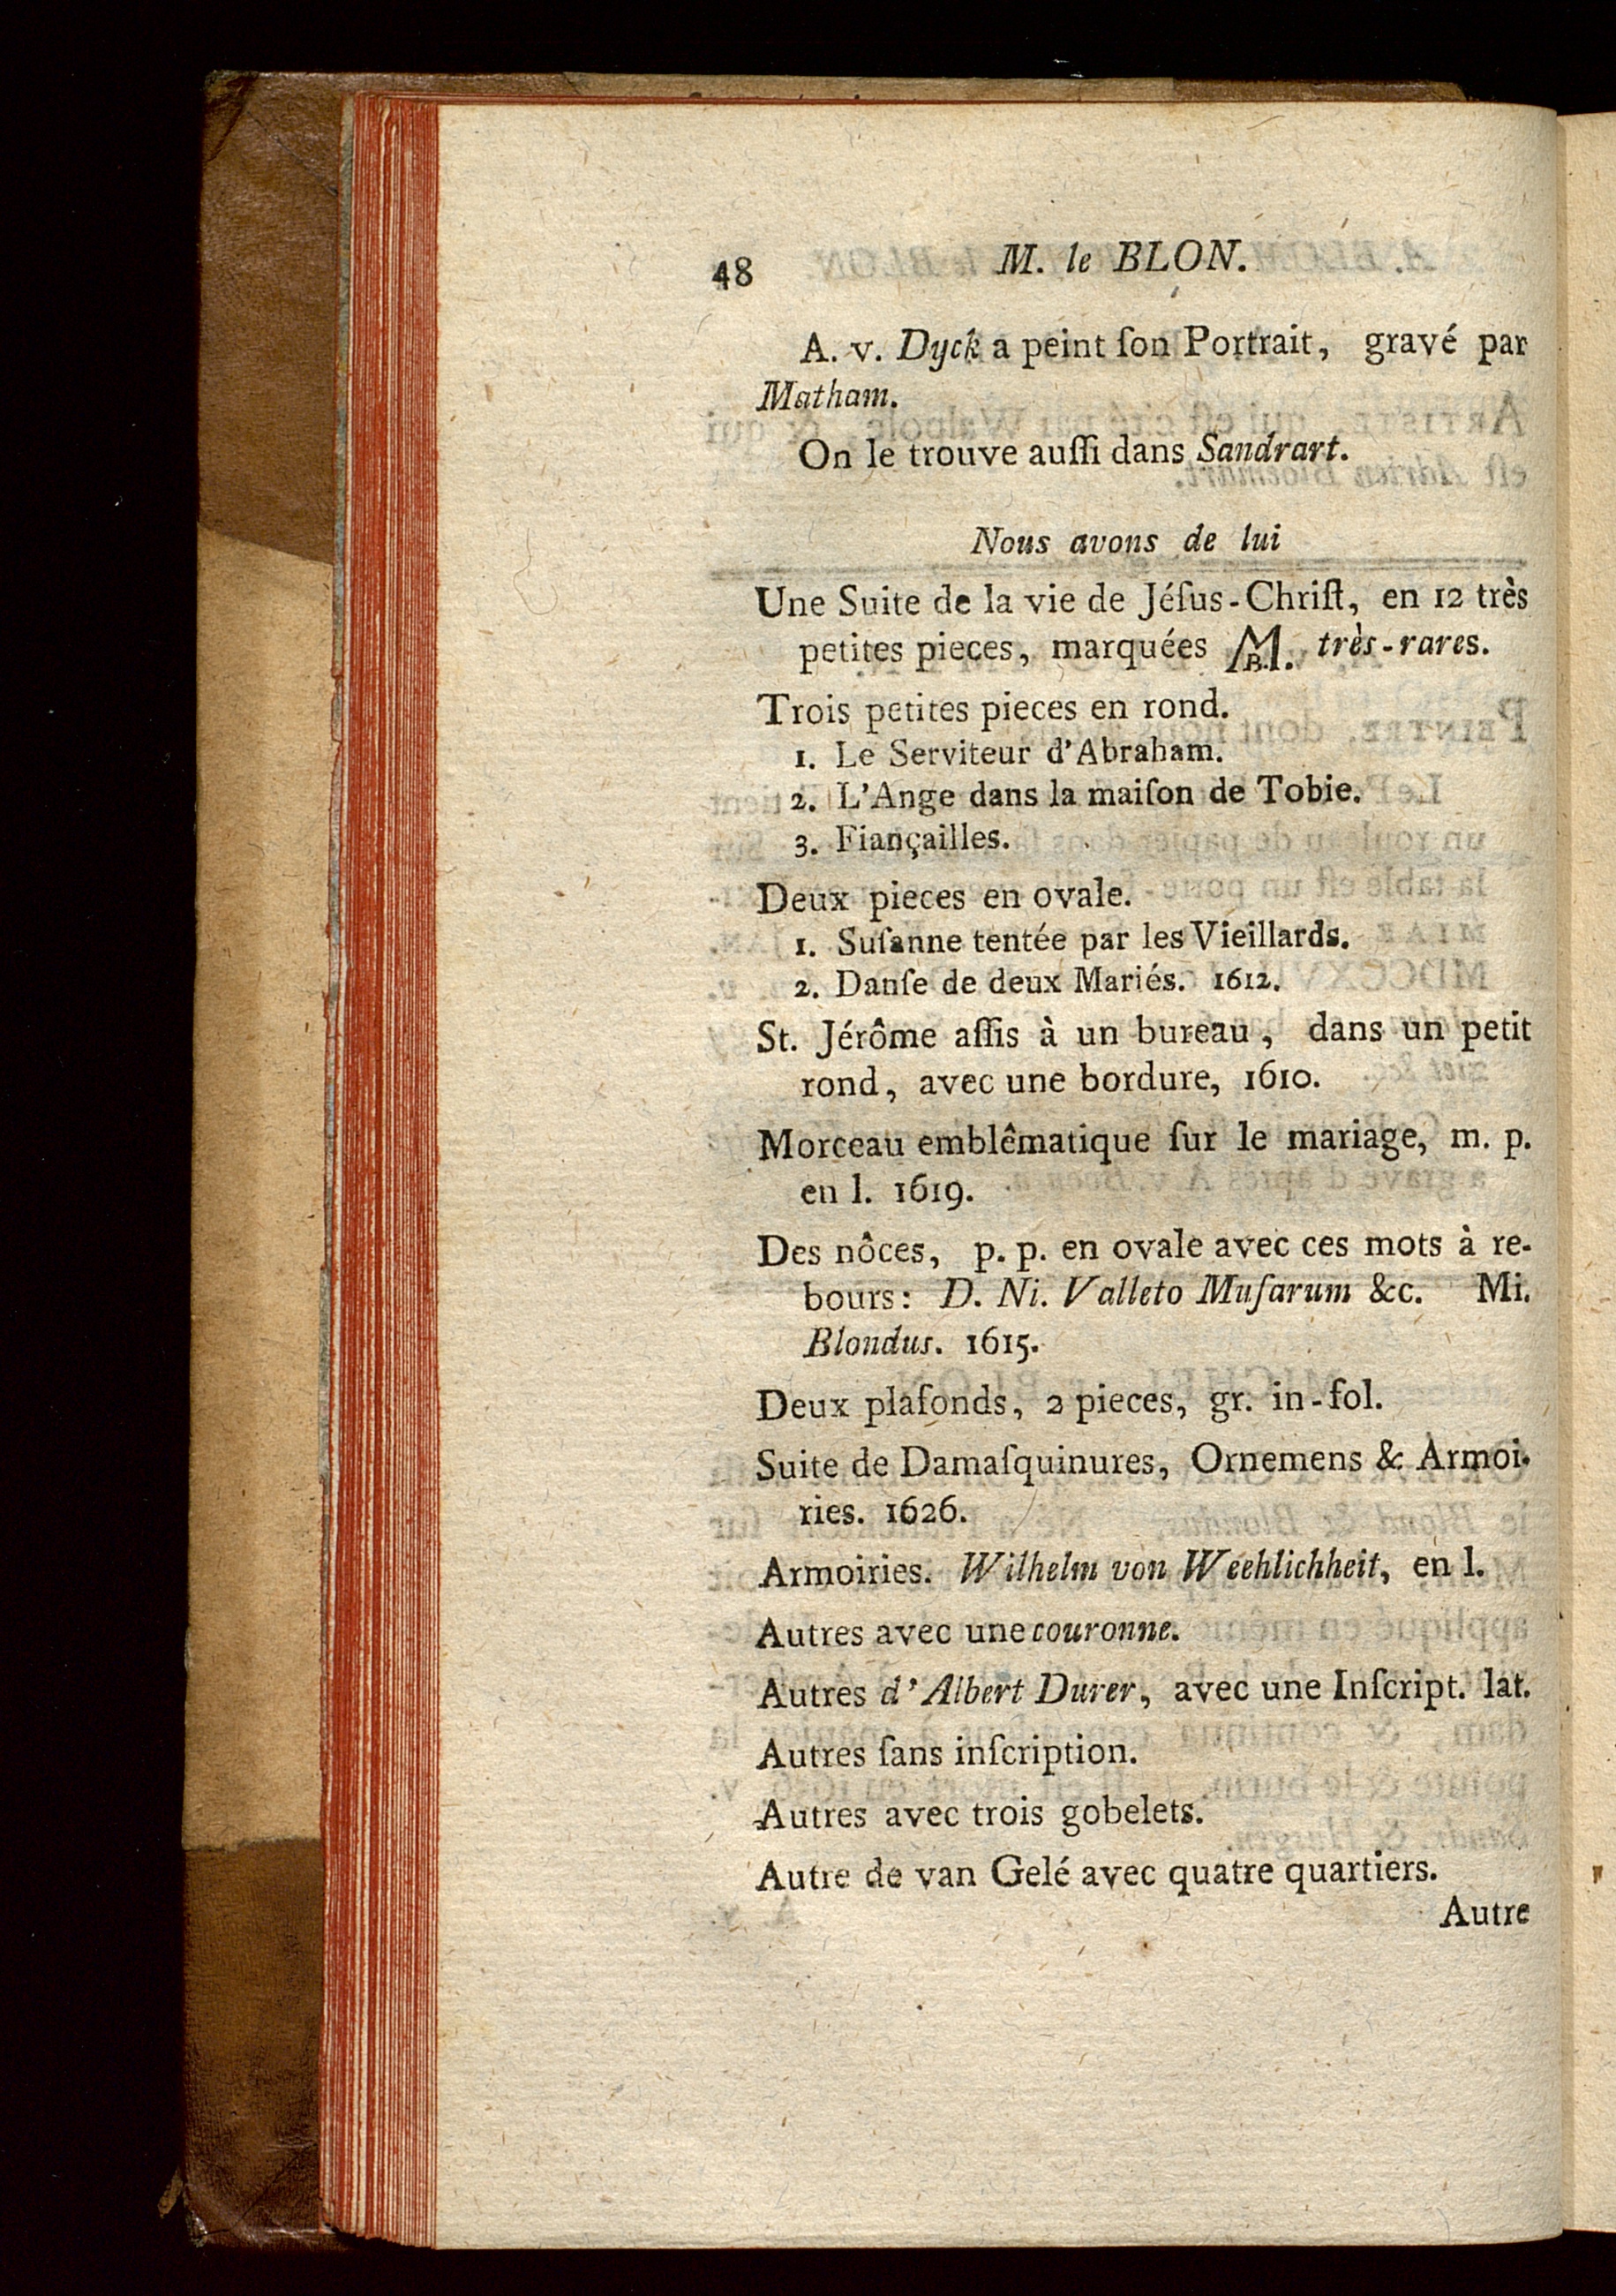 48 M. le BLON.
A. v. Dyck a peint ſon Portrait, gravé par
Matham.
On le trouve auſſi dans Sandrart.
Nous avons de lui
Une Suite de la vie de Jéſus-Chriſt, en 12 très
petites pieces, marquées MB. très-rares.
Trois petites pieces en rond.
1. Le Serviteur d'Abraham.
2. L'Ange dans la maiſon de Tobie.
3. Fiançailles.
Deux pieces en ovale.
1. Suſanne tentée par les Vieillards.
2. Danſe de deux Mariés. 1612.
St. Jérôme aſſis à un bureau, dans un petit
rond, avec une bordure, 1610.
Morceau emblêmatique ſur le mariage, m. p.
en l. 1619.
Des nôces, p. p. en ovale avec ces mots à re-
bours: D. Ni. Valleto Muſarum &c. Mi.
Blondus. 1615.
Deux plafonds, 2 pieces, gr. in-fol.
Suite de Damaſquinures, Ornemens & Armoi-
ries. 1626.
Armoiries. Wilhelm von Weehlichheit, en l.
Autres avec une couronne.
Autres d'Albert Durer, avec une Inſcript. lat.
Autres ſans inſcription.
Autres avec trois gobelets.
Autre de van Gelé avec quatre quartiers.
Autre